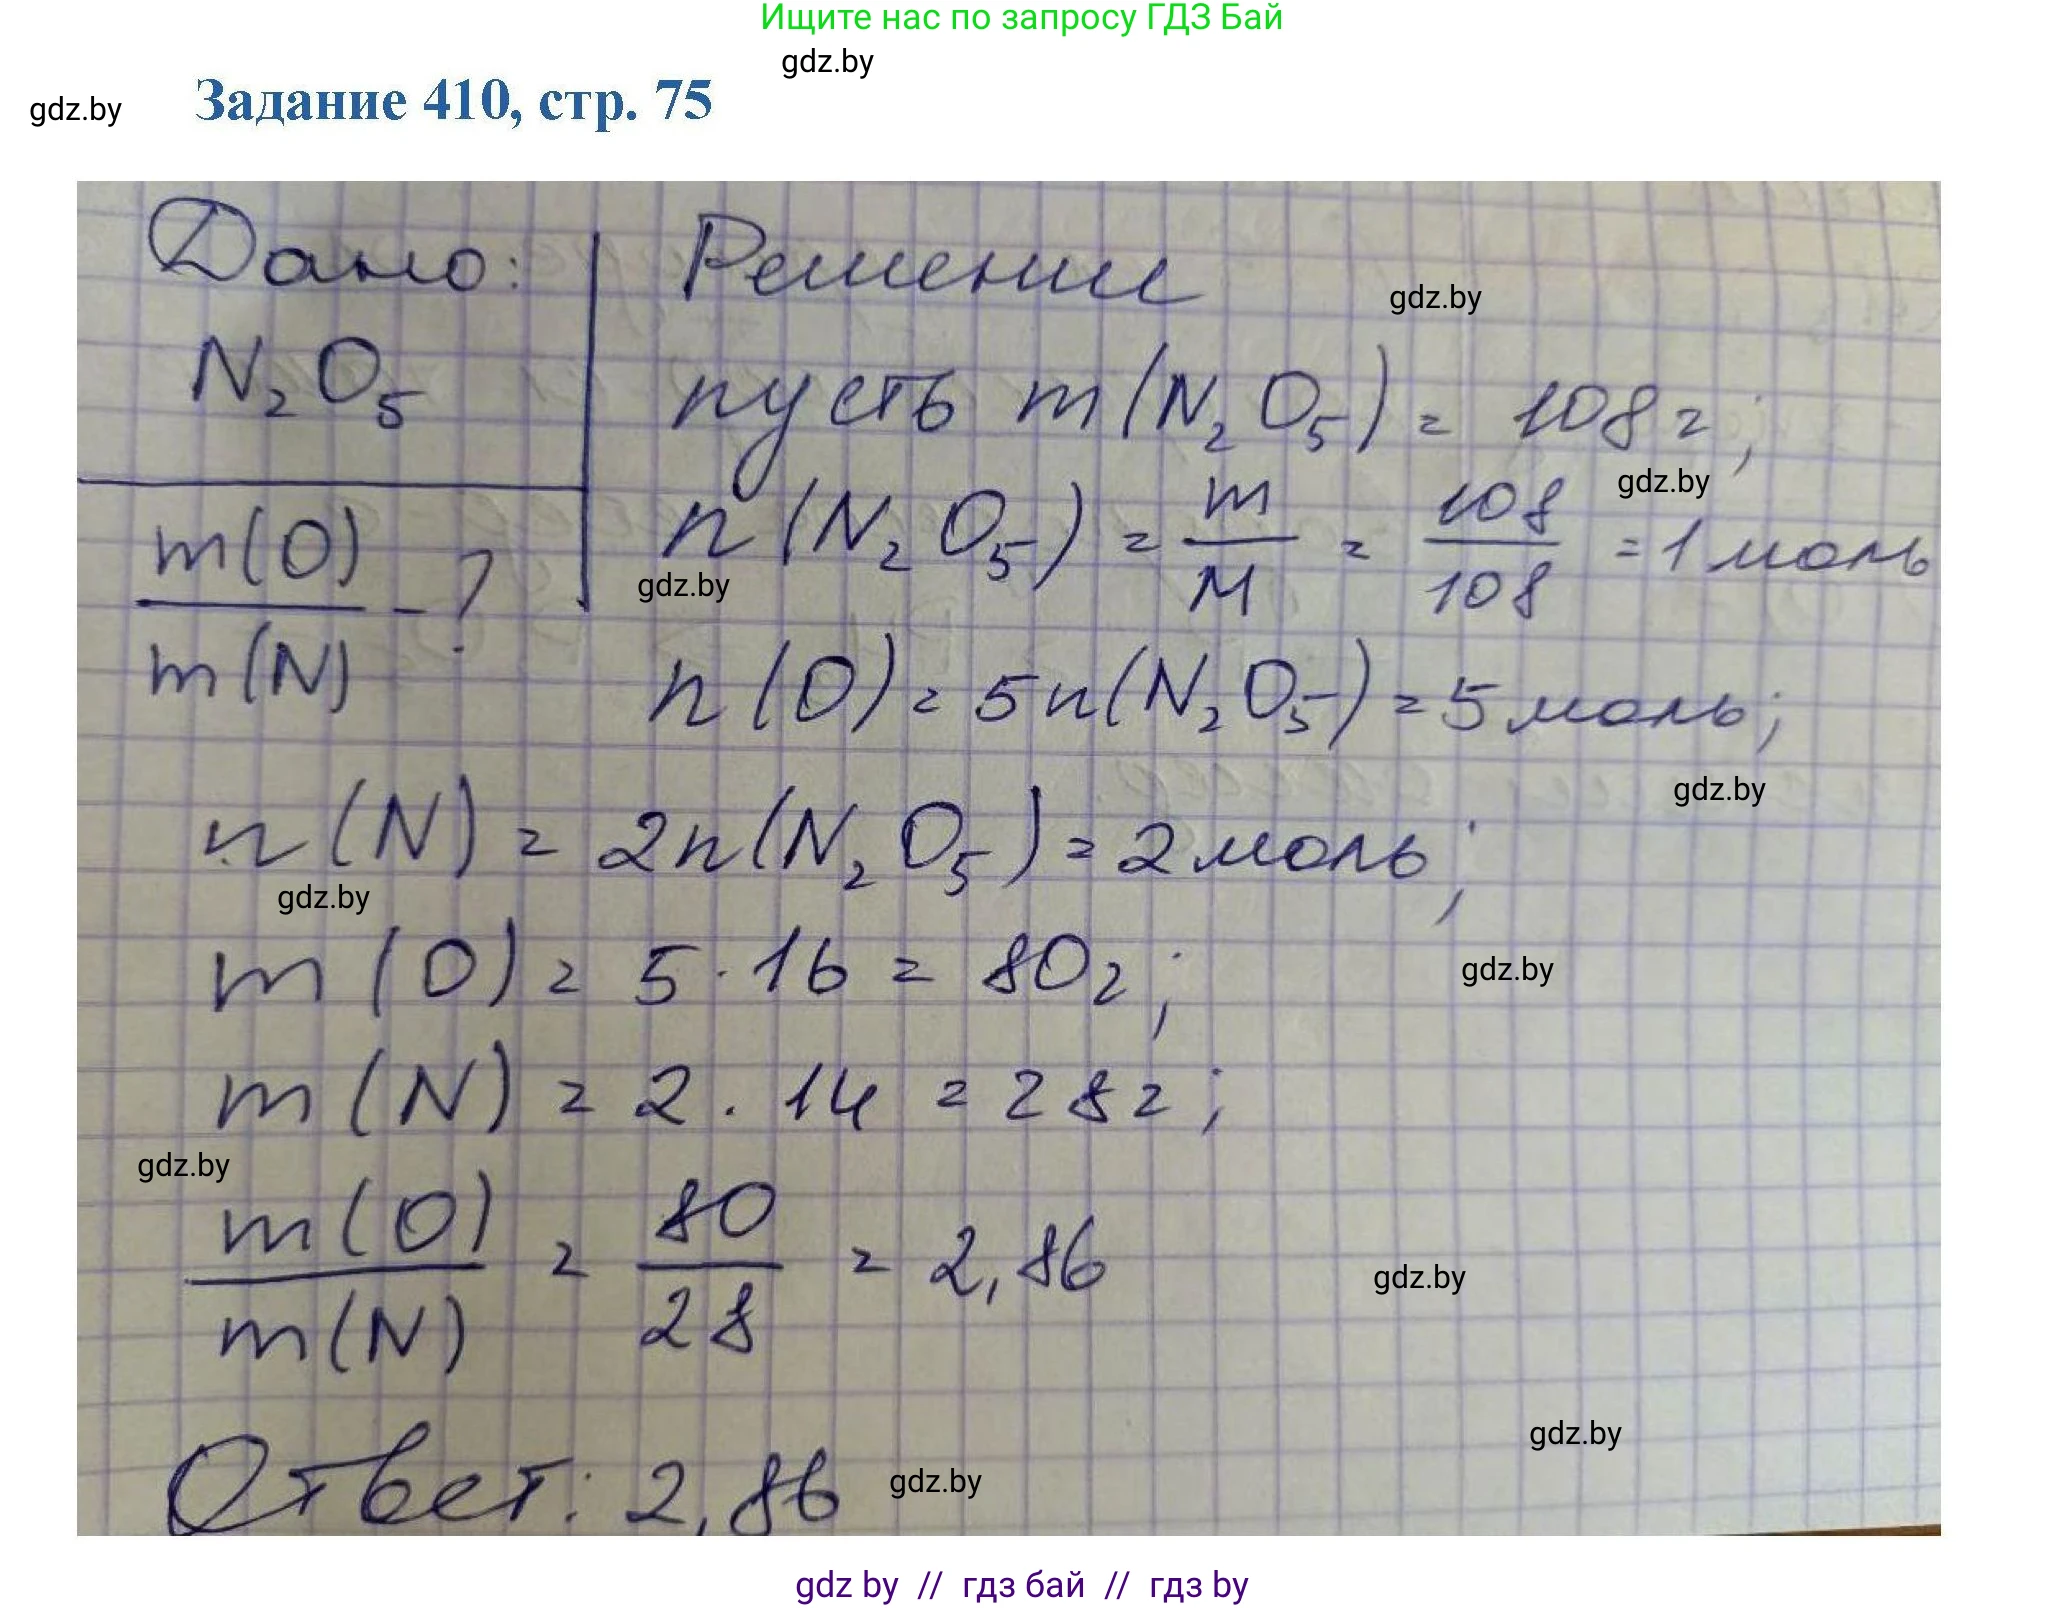 Ищите нас по запросу ГДЗ Бай
gdz.by
gdz.by Задание 410, стр. 75
Дано: Решение
gdz.by
N₂O₅ пусть m(N₂O₅) = 108 г;
gdz.by
m(O)/m(N) - ? n(N₂O₅) = m/M = 108/108 = 1 моль
gdz.by
n(O) = 5n(N₂O₅) = 5 моль;
gdz.by
n(N) = 2n(N₂O₅) = 2 моль;
gdz.by
m(O) = 5 · 16 = 80 г;
gdz.by
m(N) = 2 · 14 = 28 г;
gdz.by
m(O)/m(N) = 80/28 = 2,86
gdz.by
gdz.by
Ответ: 2,86 gdz.by
gdz by // гдз бай // гдз by